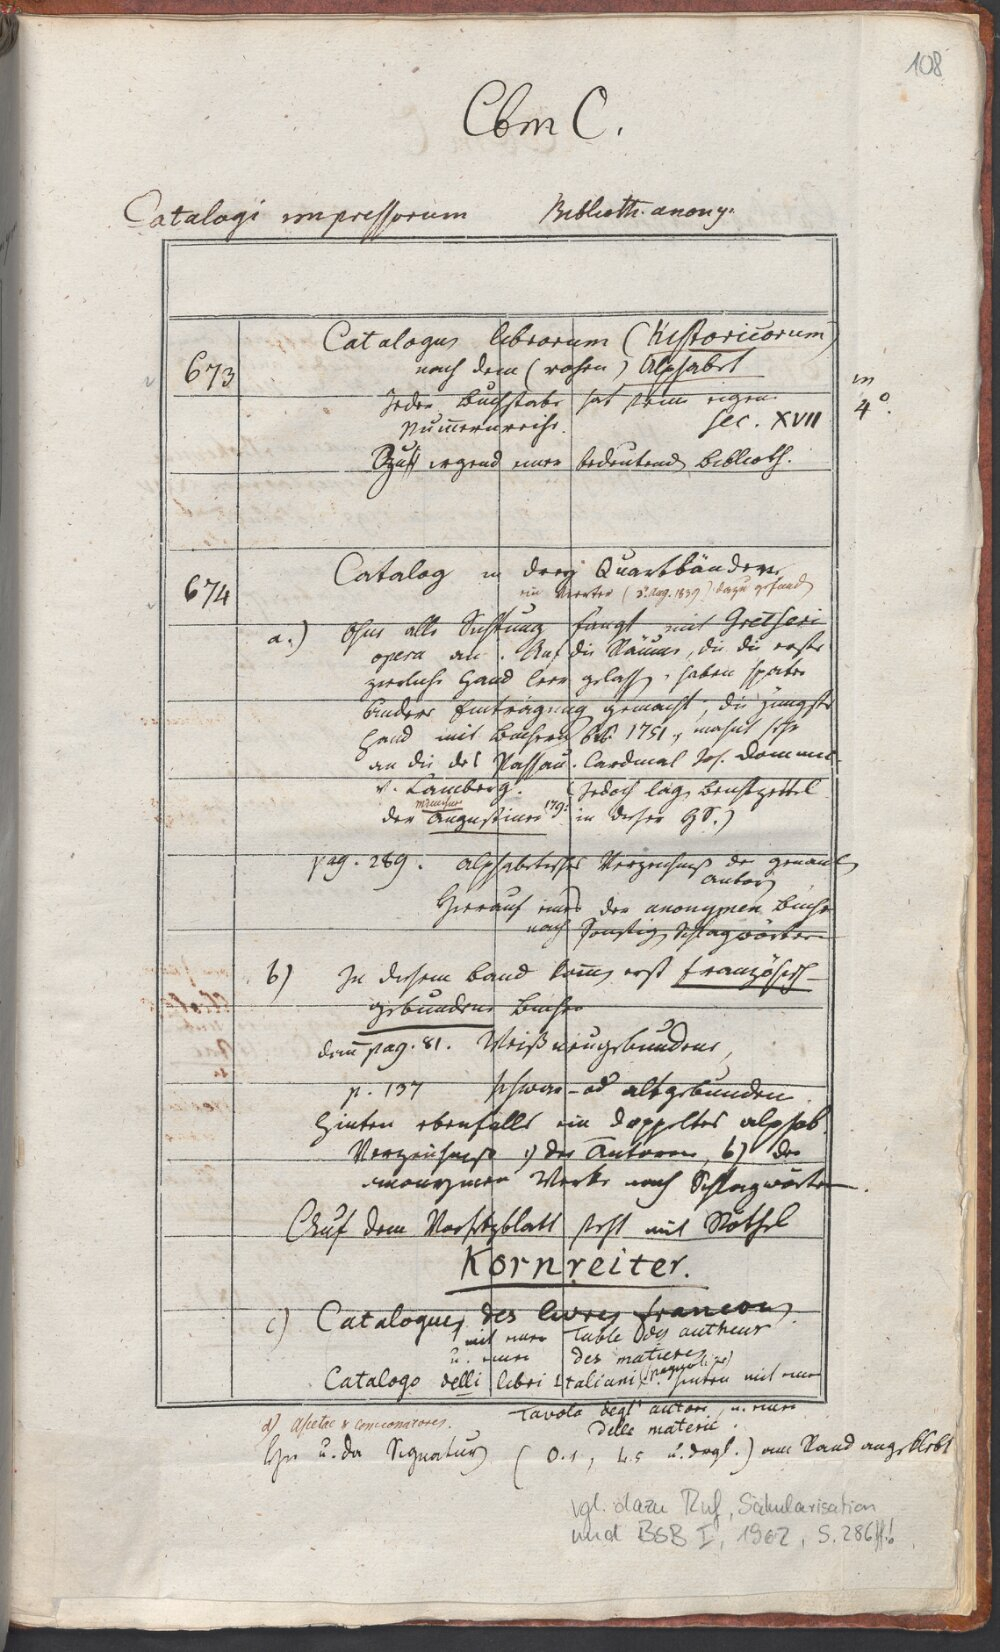 108
Cbm C.
Catalogi impressorum Biblioth. anony.
673
Catalogus librorum (historicorum)
nach dem (rohen) Alphabet
in 4°.
Jeder Buchstabe hat seine eigene
Nummernreihe. sec. XVII
irgend einer bedeutend Biblioth.
674
Catalog in drey Quartbänden.
ein vierter (3. Aug. 1839) dazu gefund
a.) Ohne alle Sichtung fangt mit Gretseri
opera an. Auf die Räume, die die erste
zierliche Hand leer gelass, haben später
andere Eintragung gemacht; die jüngste
Hand mit Büchern bis 1751, mahnt sehr
an die des Passau. Cardinal Jos. Domini.
v. Lamberg. (Jedoch lag Beichtzettel
der Münchner Augustiner 179: in dieser HS.)
pag. 289. Alphabetisches Verzeichniß der genant
Autor
Hierauf eines der anonymen Büche
nach sonstig Schlagwörtern
b) In diesem Band komm erst französisch-
gebundene Bücher
dann pag. 81. Weiß neugebundene,
p. 137 schwar- od altgebunden.
Hinten ebenfalls ein doppeltes alphab.
Verzeichniß a) der Autoren, b) der
anonymen Werke nach Schlagwörter.
Auf dem Vorsetzblatt steht mit Röthel
Kornreiter.
c) Catalogue des livres francois.
mit einer Table des autheurs
u. einer des matieres
Catalogo delli libri Italiani hinten mit einer
Tavola degl' autori, u. einer
delle materie.
d) Ascetae & Concionatores.
Hie u. da Signatur (O.1, L.5 u. drgl.) am Rand angeklebt
vgl. dazu Ruf, Säkularisation
und BSB I, 1962, S. 286ff!